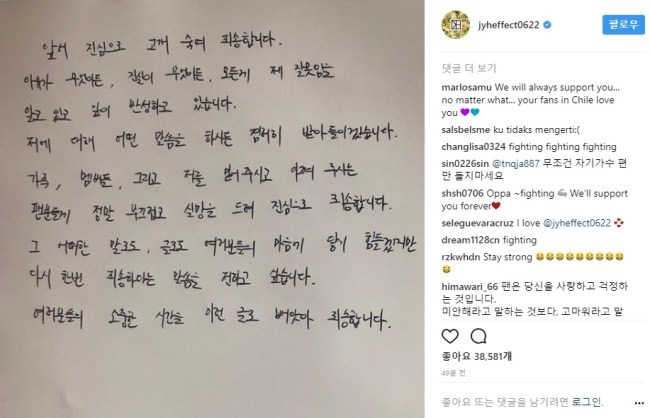 앞서 진심으로 고개 숙여 죄송합니다.
이유가 무엇이든, 진실이 무엇이든, 모든게 제 잘못임을
알고 있고 깊이 반성하고 있습니다.
저에 대해 어떤 말씀을 하시든 겸허히 받아들이겠습니다.
가족, 멤버들, 그리고 저를 믿어주시고 아껴 주시는
팬분들께 정말 부끄럽고 실망을 드려 진심으로 죄송합니다.
그 어떠한 말로도, 글로도 여러분들의 마음에 닿기 힘들겠지만
다시 한번 죄송하다는 말씀을 전하고 싶습니다.
여러분들의 소중한 시간을 이런 글로 뺏앗아 죄송합니다.
jyheffect0622
팔로우
댓글 더 보기
marlosamu We will always support you...
no matter what... your fans in Chile love
you 💜💙
salsbelsme ku tidaks mengerti:(
changlisa0324 fighting fighting fighting
sin0226sin @tnqja887 무조건 자기가수 편
만 들지마세요
shsh0706 Oppa ~fighting 💪 We'll support
you forever❤
seleguevaracruz I love @jyheffect0622
dream1128cn fighting
rzkwhdn Stay strong 😂😂😂😂😂😂😂😂
😂
himawari_66 팬은 당신을 사랑하고 걱정하
는 것입니다.
미안해라고 말하는 것보다, 고마워라고 말
좋아요 38,581개
49분 전
좋아요 또는 댓글을 남기려면 로그인.